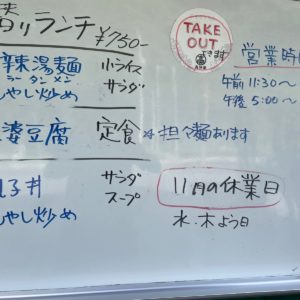 替りランチ ¥750-
辣湯麺 小ライス
ラータンメン サラダ
やし炒め
婆豆腐 定食 担々麺あります
子丼 サラダ
やし炒め スープ
TAKE OUT
できます
営業時間
午前 11:30〜
午後 5:00〜
11月の休業日
水・木よう日